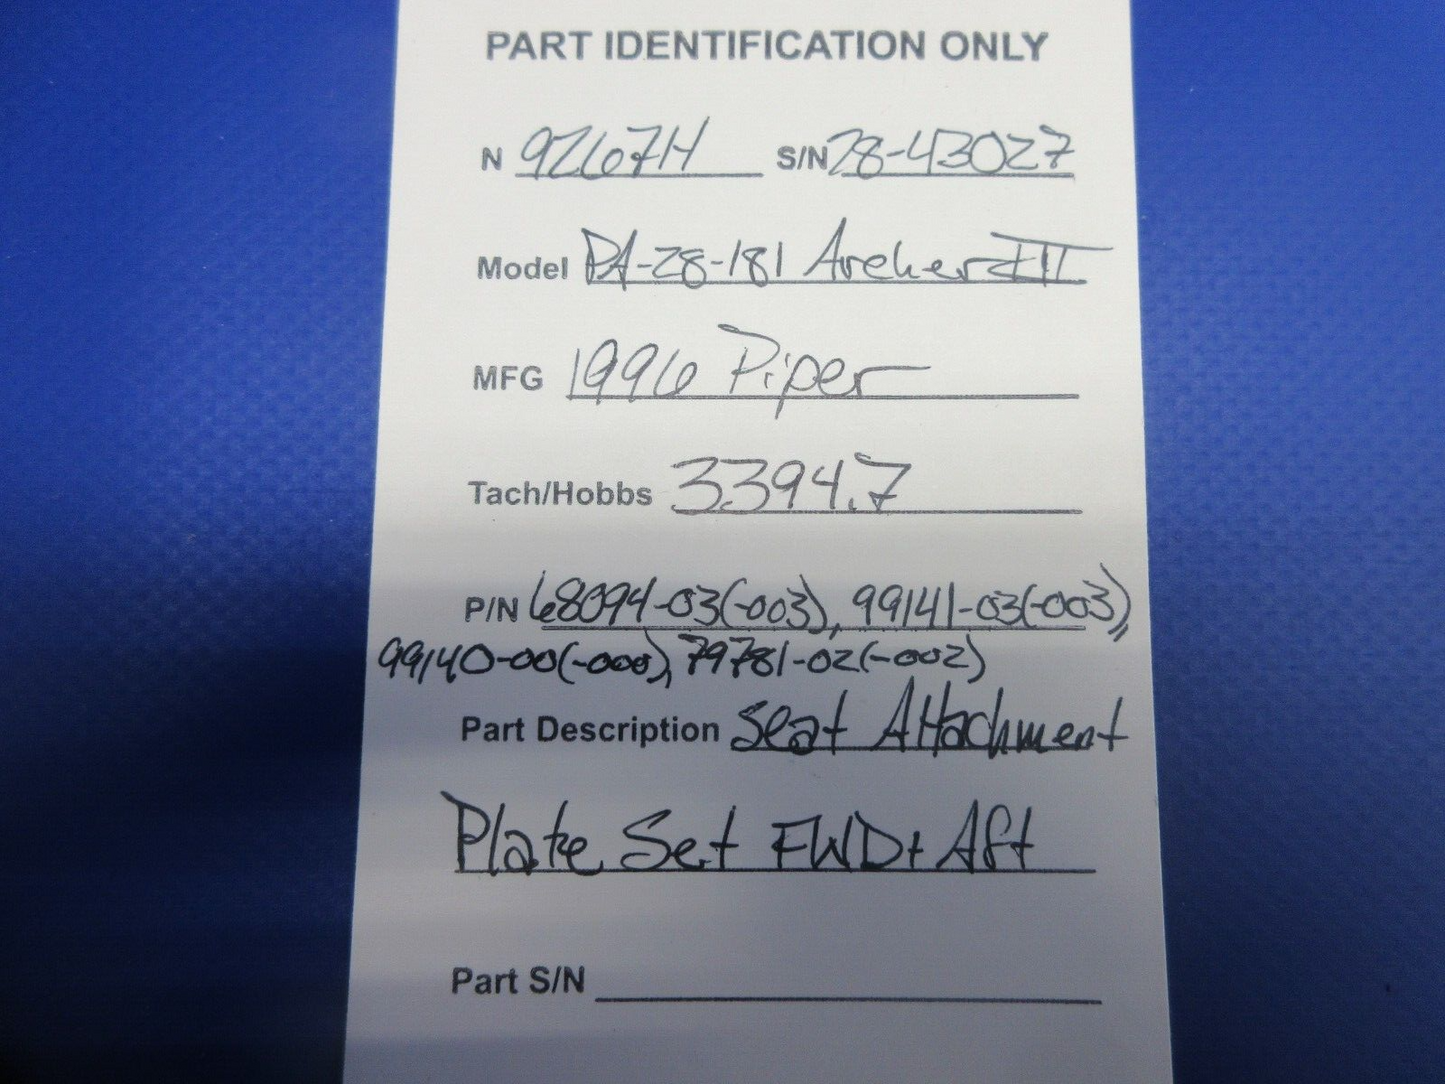 PART IDENTIFICATION ONLY
N 9267H S/N 28-43027
Model PA-28-181 Archer III
MFG 1996 Piper
Tach/Hobbs 3394.7
P/N 68094-03(-003), 99141-03(-003),
99140-00(-000), 79781-02(-002)
Part Description Seat Attachment
Plate Set FWD + Aft
Part S/N